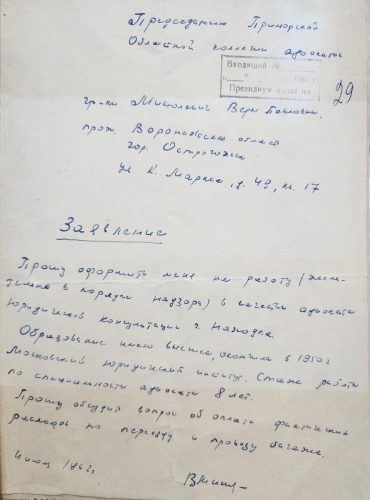 Председателю Приморской
Областной коллегии адвокатов
Входящий №
196 г.
Президиум колле ии
29
гр-ки Мисюлевич Веры Павловны,
прож. Воронежская область
гор. Острогожск
ул К. Маркса, д. 49, к. 17
Заявление
Прошу оформить меня на работу
в порядке надзора) в качестве адвоката
Юридической консультации г. Находка.
Образование имею высшее, окончила в 1950 г
Московский Юридический институт. Стаж работы
по специальности адвоката 8 лет.
Прошу обсудить вопрос об оплате фактических
расходов по переезду и провозу багажа.
1962 г.